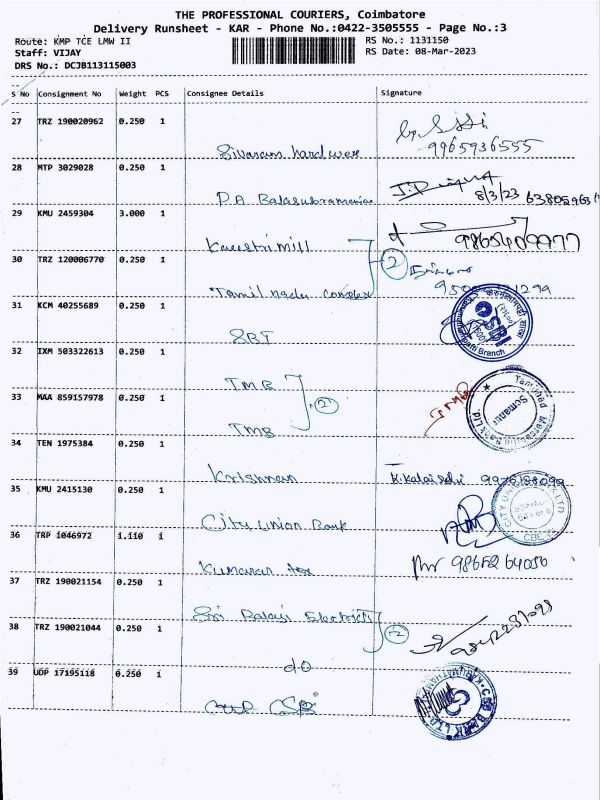 THE PROFESSIONAL COURIERS, Coimbatore
Delivery Runsheet - KAR - Phone No.:0422-3505555 - Page No.:3
Route: KMP TCE LMW II
RS No.: 1131150
Staff: VIJAY
RS Date: 08-Mar-2023
DRS No.: DCJB113115003
S No Consignment No Weight PCS Consignee Details Signature
27 TRZ 190020962 0.250 1
Sivaram hardware
9965936555
28 MTP 3029028 0.250 1
P.A. Balasubramaniam
8/3/23
29 KMU 2459304 3.000 1
Kausthi mill
30 TRZ 120006770 0.250 1
2
Tamil nadu complex
31 KCM 40255689 0.250 1
SBI
SBI
Branch
32 IXM 503322613 0.250 1
TMB
33 MAA 859157978 0.250 1
2
TMB
Tamilnad Mercantile Bank Ltd
34 TEN 1975384 0.250 1
Krishnan
K.Kalaiselvi
35 KMU 2415130 0.250 1
City Union Bank
CITY UNION
CBE
36 TRP 1046972 1.110 1
Kumaran tex
37 TRZ 190021154 0.250 1
Sri Balaji Electrical
2
38 TRZ 190021044 0.250 1
do
39 UDP 17195118 0.250 1
CSB BANK LTD